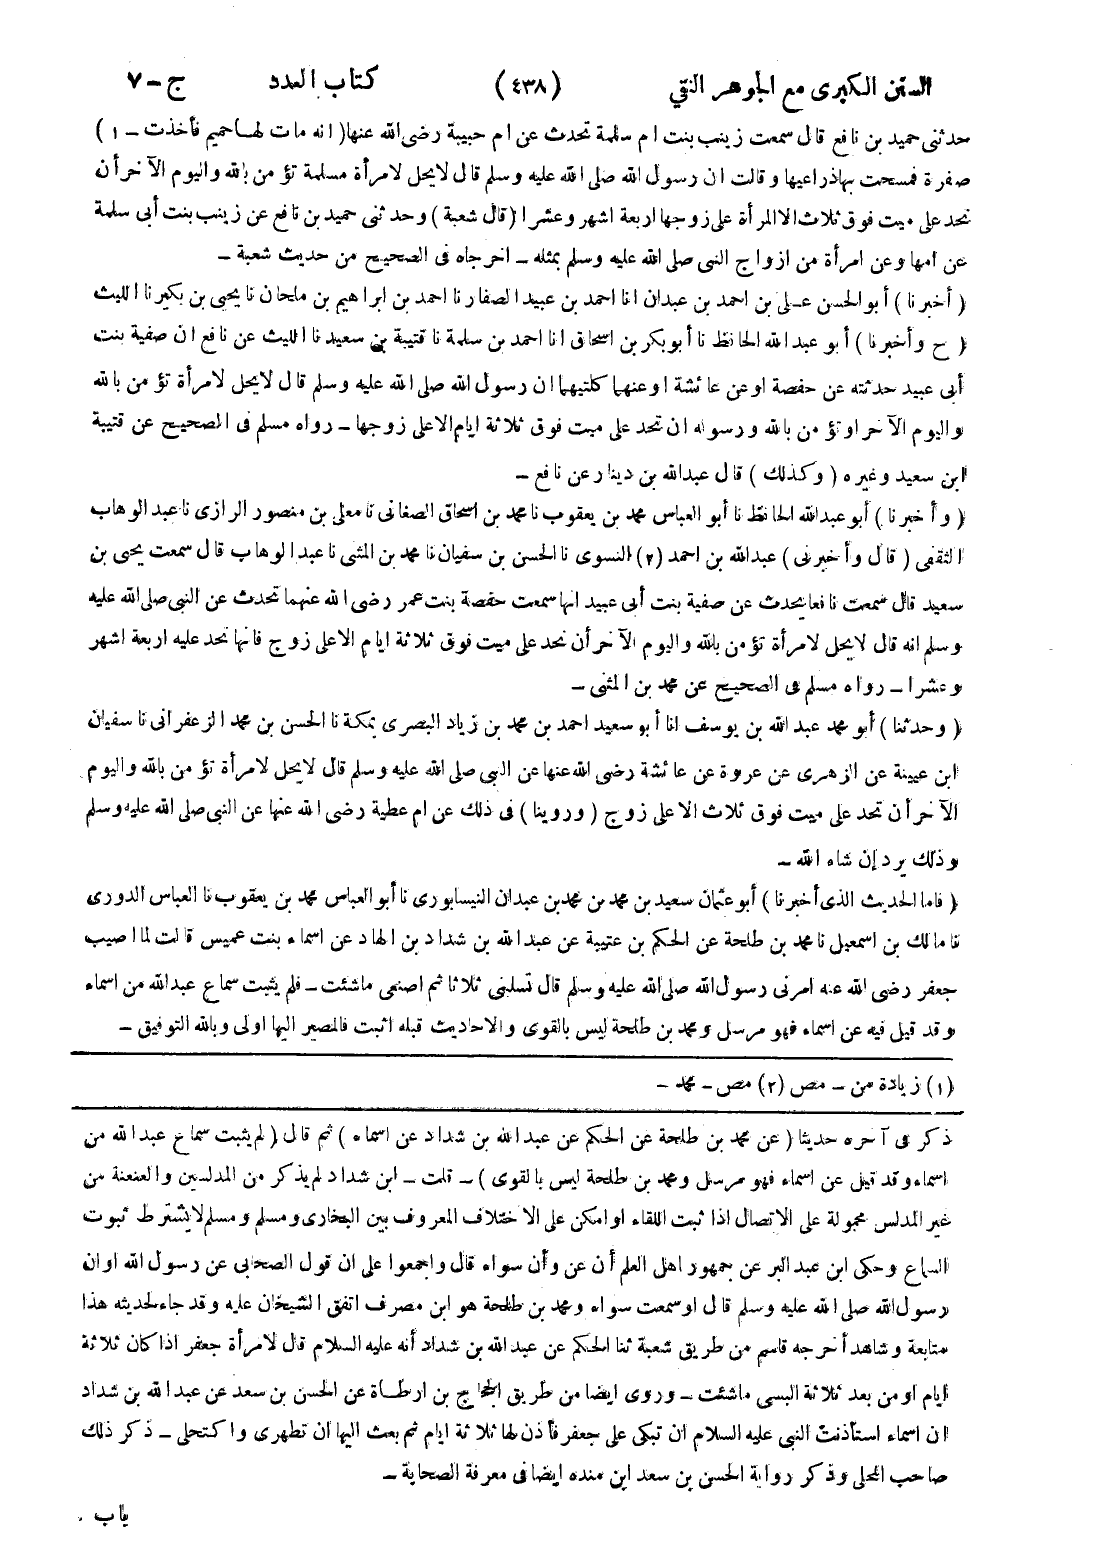 السنن الكبرى مع الجوهر النقي (٤٣٨) كتاب العدد ج – ٧
حدثنى حميد بن نافع قال سمعت زينب بنت ام سلمة تحدث عن ام حبيبة رضى الله عنها (انه مات لها حميم فأخذت – ١)
صفرة فمسحت بها ذراعيها وقالت ان رسول الله صلى الله عليه وسلم قال لا يحل لامرأة مسلمة تؤمن بالله واليوم الآخر أن
تحد على ميت فوق ثلاث الا المرأة على زوجها اربعة اشهر وعشرا (قال شعبة) وحدثنى حميد بن نافع عن زينب بنت أبى سلمة
عن امها وعن امرأة من ازواج النبى صلى الله عليه وسلم بمثله – اخرجاه فى الصحيح من حديث شعبة –
(أخبرنا) أبو الحسن على بن احمد بن عبدان انا احمد بن عبيد الصفار نا احمد بن ابراهيم بن ملحان نا يحيى بن بكير نا الليث
(ح وأخبرنا) أبو عبد الله الحافظ نا أبو بكر بن اسحاق انا احمد بن سلمة نا قتيبة بن سعيد نا الليث عن نافع ان صفية بنت
أبى عبيد حدثته عن حفصة او عن عائشة او عنهما كلتيهما ان رسول الله صلى الله عليه وسلم قال لا يحل لامرأة تؤمن بالله
واليوم الآخر او تؤمن بالله ورسوله ان تحد على ميت فوق ثلاثة ايام الا على زوجها – رواه مسلم فى الصحيح عن قتيبة
ابن سعيد وغيره (وكذلك) قال عبدالله بن دينار عن نافع –
(وأخبرنا) أبو عبدالله الحافظ نا أبو العباس محمد بن يعقوب نا محمد بن اسحاق الصغانى نا معلى بن منصور الرازى نا عبد الوهاب
الثقفى (قال وأخبرنى) عبدالله بن احمد (٢) النسوى نا الحسن بن سفيان نا محمد بن المثنى نا عبد الوهاب قال سمعت يحيى بن
سعيد قال سمعت نافعا يحدث عن صفية بنت أبى عبيد انها سمعت حفصة بنت عمر رضى الله عنهما تحدث عن النبى صلى الله عليه
وسلم انه قال لا يحل لامرأة تؤمن بالله واليوم الآخر أن تحد على ميت فوق ثلاثة ايام الا على زوج فانها تحد عليه اربعة اشهر
وعشرا – رواه مسلم فى الصحيح عن محمد بن المثنى –
(وحدثنا) أبو محمد عبد الله بن يوسف انا أبو سعيد احمد بن محمد بن زياد البصرى بمكة نا الحسن بن محمد الزعفرانى نا سفيان
ابن عيينة عن الزهرى عن عروة عن عائشة رضى الله عنها عن النبى صلى الله عليه وسلم قال لا يحل لامرأة تؤمن بالله واليوم
الآخر أن تحد على ميت فوق ثلاث الا على زوج (وروينا) فى ذلك عن ام عطية رضى الله عنها عن النبى صلى الله عليه وسلم
وذلك يرد إن شاء الله –
(فاما الحديث الذى أخبرنا) أبو عثمان سعيد بن محمد بن محمد بن عبدان النيسابورى نا أبو العباس محمد بن يعقوب نا العباس الدورى
نا مالك بن اسمعيل نا محمد بن طلحة عن الحكم بن عتيبة عن عبدالله بن شداد بن الهاد عن اسماء بنت عميس قالت لما اصيب
جعفر رضى الله عنه امرنى رسول الله صلى الله عليه وسلم قال تسلبى ثلاثا ثم اصنعى ما شئت – فلم يثبت سماع عبدالله من اسماء
وقد قيل فيه عن اسماء فهو مرسل ومحمد بن طلحة ليس بالقوى والاحاديث قبله اثبت فالمصير اليها اولى وبالله التوفيق –
(١) زيادة من – مص (٢) مص – محمد –
ذكر فى آخره حديثا (عن محمد بن طلحة عن الحكم عن عبدالله بن شداد عن اسماء) ثم قال (لم يثبت سماع عبدالله من
اسماء وقد قيل عن اسماء فهو مرسل ومحمد بن طلحة ليس بالقوى) – قلت – ابن شداد لم يذكر من المدلسين والعنعنة من
غير المدلس محمولة على الاتصال اذا ثبت اللقاء او امكن على الاختلاف المعروف بين البخارى ومسلم ومسلم لا يشترط ثبوت
السماع وحكى ابن عبدالبر عن جمهور اهل العلم أن عن وأن سواء قال واجمعوا على ان قول الصحابى عن رسول الله او ان
رسول الله صلى الله عليه وسلم قال او سمعت سواء ومحمد بن طلحة هو ابن مصرف اتفق الشيخان عليه وقد جاء لحديثه هذا
متابعة وشاهد أخرجه قاسم من طريق شعبة ثنا الحكم عن عبدالله بن شداد أنه عليه السلام قال لامرأة جعفر اذا كان ثلاثة
ايام او من بعد ثلاثة البسى ما شئت – وروى ايضا من طريق الحجاج بن ارطاة عن الحسن بن سعد عن عبدالله بن شداد
ان اسماء استأذنت النبى عليه السلام ان تبكى على جعفر فأذن لها ثلاثة ايام ثم بعث اليها ان تطهرى واكتحلى – ذكر ذلك
صاحب المحلى وذكر رواية الحسن بن سعد ابن منده ايضا فى معرفة الصحابة –
باب